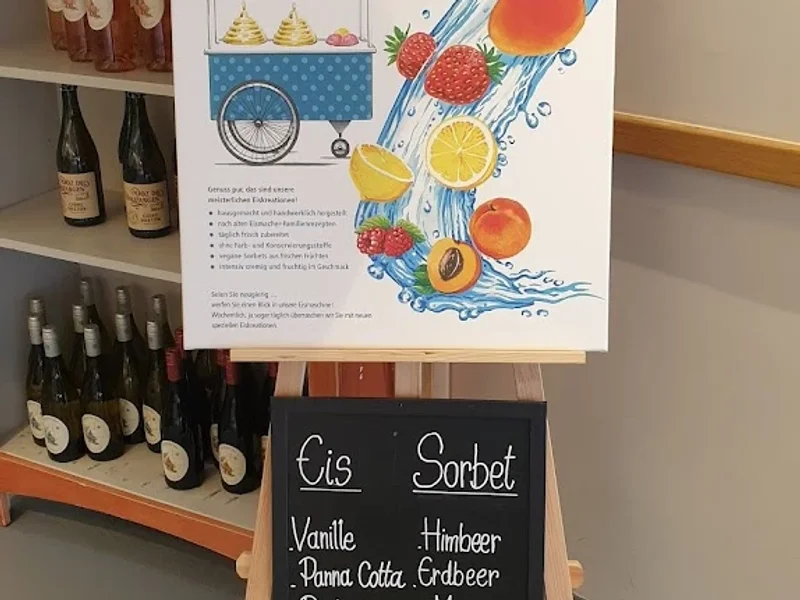 Genuss pur, das sind unsere
meisterlichen Eiskreationen!
hausgemacht und handwerklich hergestellt
nach alten Eismacher-Familienrezepten
täglich frisch zubereitet
ohne Farb- und Konservierungsstoffe
vegane Sorbets aus frischen Früchten
intensiv cremig und fruchtig im Geschmack
Seien Sie neugierig ...
werfen Sie einen Blick in unsere Eismaschine!
Wöchentlich, ja sogar täglich überraschen wir Sie mit neuen
speziellen Eiskreationen.
Eis Sorbet
.Vanille .Himbeer
.Panna Cotta .Erdbeer